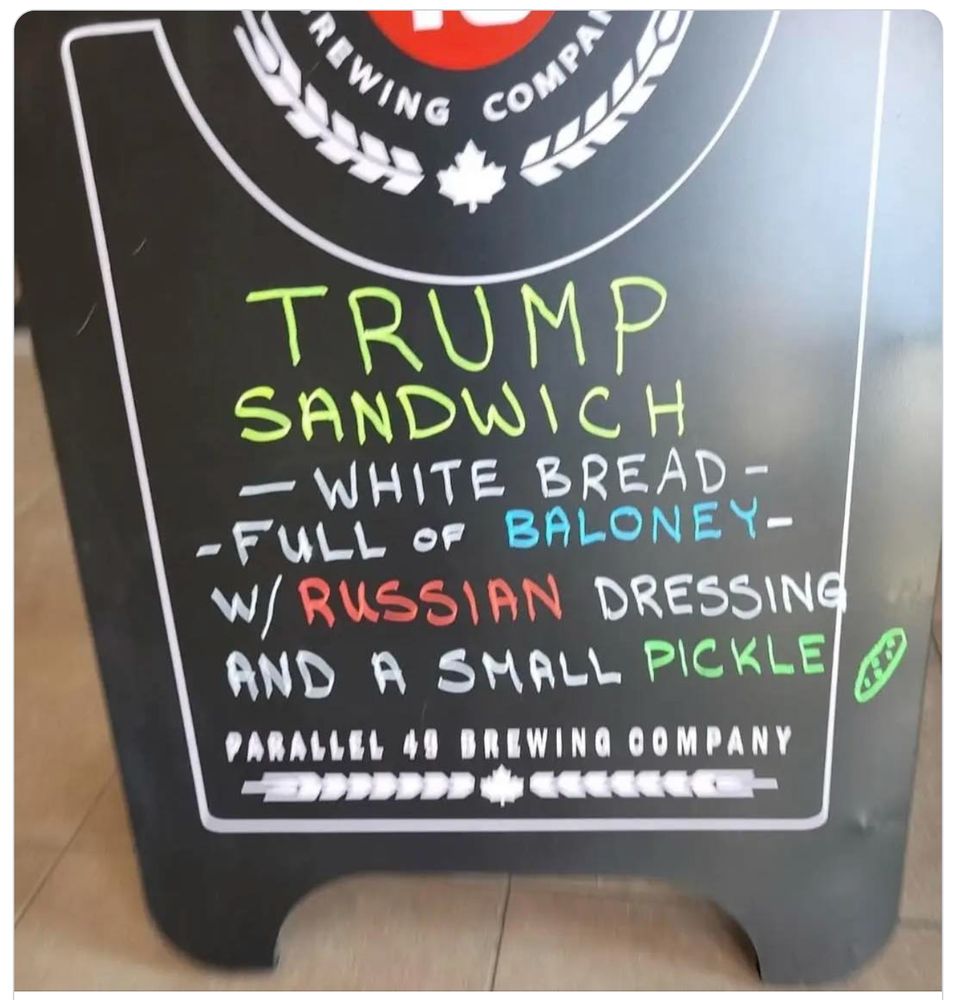 BREWING COMPANY
TRUMP
SANDWICH
— WHITE BREAD -
- FULL OF BALONEY -
W/ RUSSIAN DRESSING
AND A SMALL PICKLE
PARALLEL 49 BREWING COMPANY